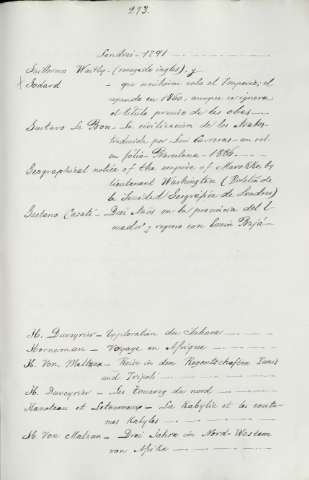 273.
Londres - 1791
Guillermo (renegado inglés), y
Godard - que escribieron sobre el Imperio, el
segundo en 1860, aunque se ignora
el título preciso de las obras
Gustavo Le Bon - La civilización de los árabes
traducida por Luis Carreras - un vol.
en fólio - Barcelona - 1886
Geographical notice of the empire of Marokko by
lieutenant Washington (Boletín de
la Sociedad Geográfica de Londres)
Gustano Casati - Diez Años en la provincia del E-
cuador y regreso con Emin Bajá
H. Duveyrier - Exploration du Sahara
Horneman - Voyage en Afrique
H. Von Maltzan - Reise in den Regentschaften Tunis
und Tripoli
H. Duveyrier - Les Touareg du nord
Hanoteau et Letourneux - La Kabylie et les coutu-
mes Kabyles
H. Von Maltzan - Drei Jahre in Nord-Westen
von Afrika